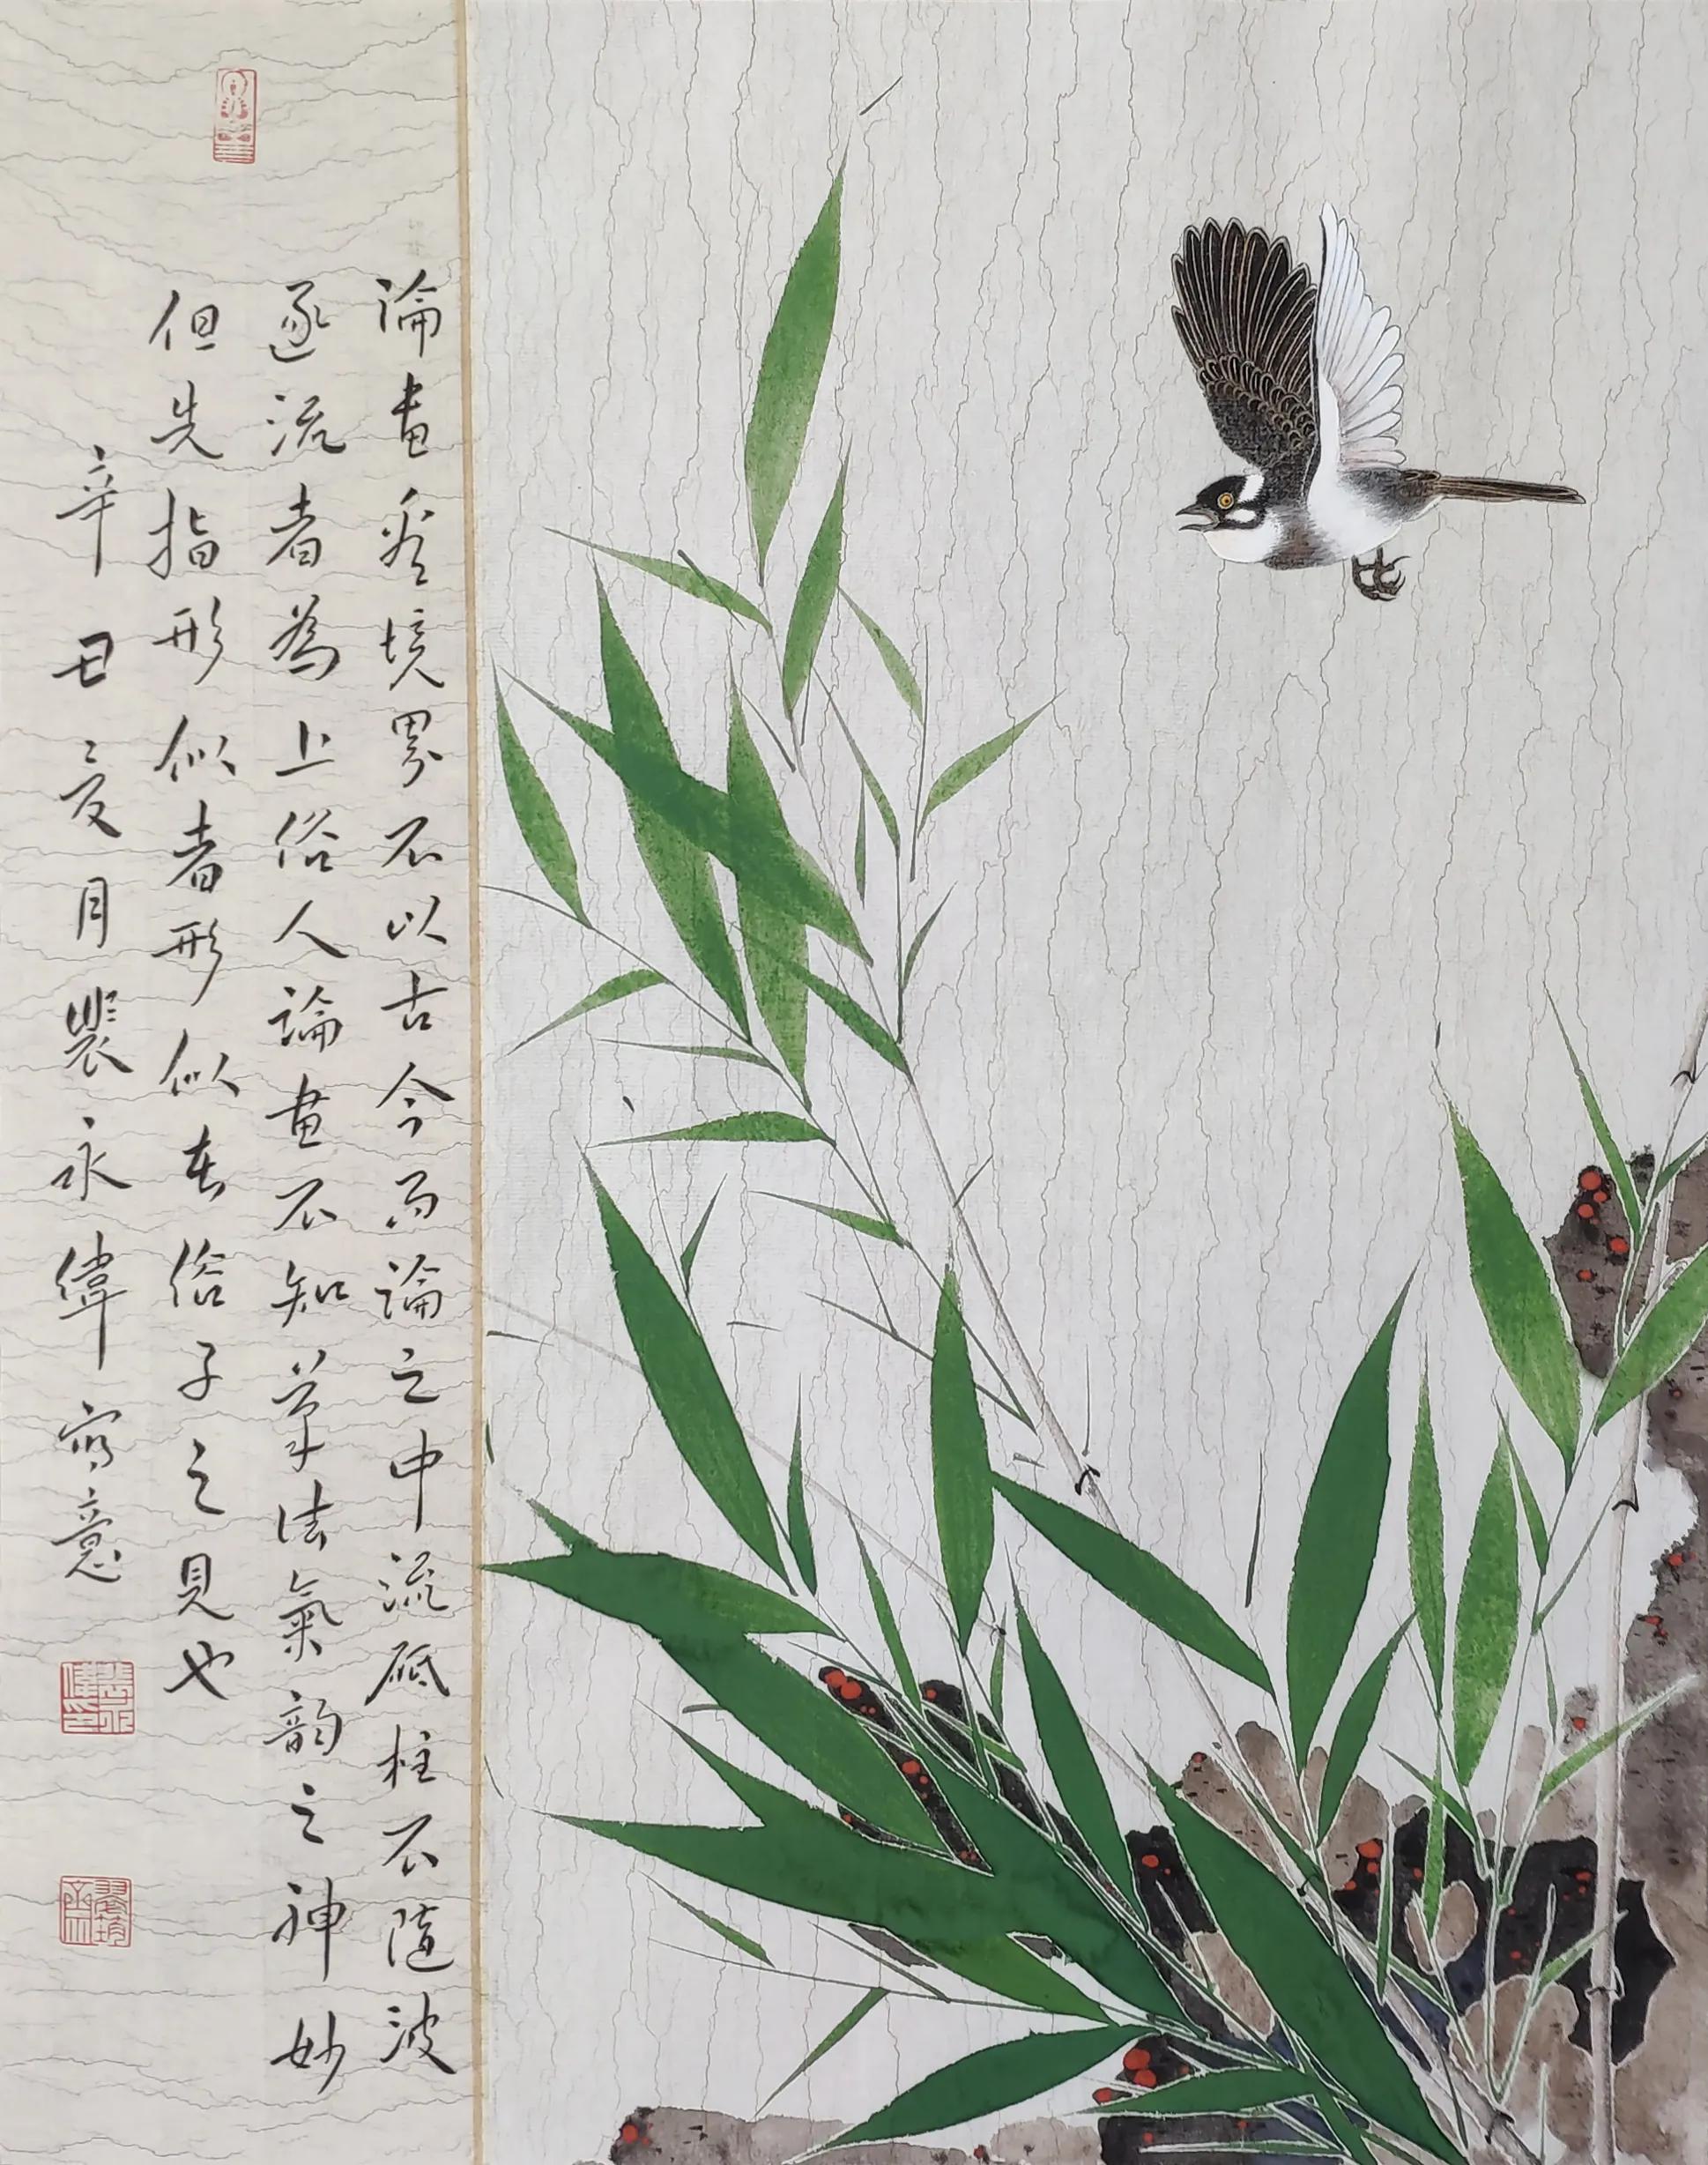 論畫登境界不以古今而論之中流砥柱不隨波
逐流者為上俗人論畫不知筆法氣韵之神妙
但先指形似者形似者俗子之見也
辛丑夏月裴永偉寫意